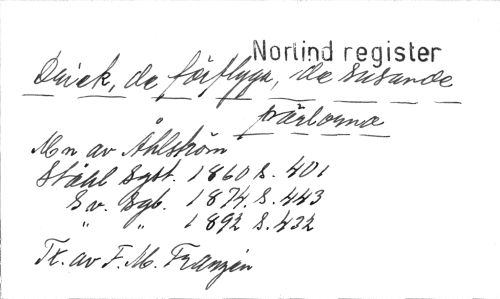 Norlind register
Drick, de förflyga, de susande
pärlorna
Mn av Åhlström
Ståhl Sgst. 1860 S. 401
Sv. Sgb. 1874. S. 443
" " 1892 S. 432
Tx. av F. M. Franzén